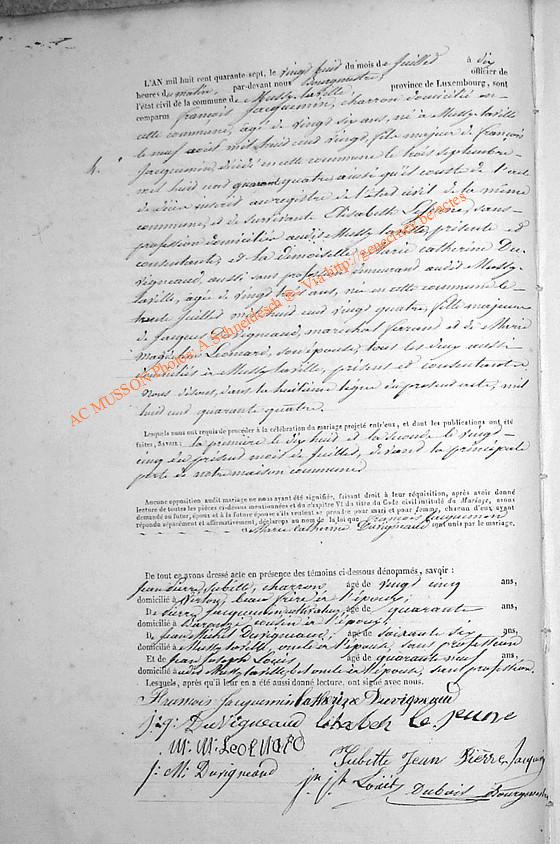 L'AN mil huit cent quarante-sept, le vingt huit du mois de juillet à dix
heures du matin, par-devant nous Bourgmestre, officier de
l'état civil de la commune de Mussy-la-ville province de Luxembourg, sont
comparus françois Jacquemin, charron domicilié en
cette commune, âgé de vingt six ans, né à Mussy-la-ville
le neuf août mil huit cent vingt, fils majeur de françois
Jacquemin décédé en cette commune le trois septembre
4. mil huit cent quarante quatre ainsi qu'il conste de l'acte
de décès inscrit au registre de l'état civil de la même
commune, et de survivante Elisabeth sans
profession domiciliée audit Mussy-la-ville, présente et
consentante; et la demoiselle Marie catherine Du-
vigneaud, aussi sans profession demeurant audit Mussy-
la-ville, âgée de vingt trois ans, née en cette commune le
trente juillet mil huit cent vingt quatre, fille majeure
de Jacques Duvigneaud, maréchal ferrant et de Marie
Magdeleine Léonard, son épouse, tous les deux aussi
domiciliés à Mussy-la-ville, présents et consentants.
Nous disons, dans la huitième ligne du présent acte, mil
huit cent quarante quatre.
AC MUSSON Photos A.Schneidesch ® Via http://geneanet.be/actes
Lesquels nous ont requis de procéder à la célébration du mariage projeté entr'eux, et dont les publications ont été
faites, Savoir: la première le dix huit et la seconde le vingt-
cinq du présent mois de juillet, devant la principale
porte de notre maison commune
Aucune opposition audit mariage ne nous ayant été signifiée, faisant droit à leur réquisition, après avoir donné
lecture de toutes les pièces ci-dessus mentionnées et du chapitre VI du titre du Code civil intitulé du Mariage, avons
demandé au futur époux et à la future épouse s'ils veulent se prendre pour mari et pour femme, chacun d'eux ayant
répondu séparément et affirmativement, déclarons au nom de la loi que François Jacquemin
et Marie Catherine Duvigneaud sont unis par le mariage.
De tout en avons dressé acte en présence des témoins ci-dessous dénommés, savoir :
Jean Pierre Jubitte, charron âgé de vingt cinq ans,
domicilié à Virton, beau frère à l'époux;
De Pierre Jacquemin, cultivateur, âgé de quarante ans,
domicilié à cousin à l'époux;
De Jean Michel Duvigneaud, âgé de soixante six ans,
domicilié à Mussy-la-ville, oncle à l'épouse, sans profession
Et de Jean Joseph Louis âgé de quarante neuf ans,
domicilié audit Mussy-la-ville, oncle à l'épouse, sans profession.
Lesquels, après qu'il leur en a été aussi donné lecture, ont signé avec nous.
Francois Jacquemin Catherine Duvigneaud
j: j: Duvigneaud le jeune
M: M: Leonard
Jubitte Jean Pierre Jacquemin
j: M: Duvigneaud
jn jph Louis Dubois Bourgmestre